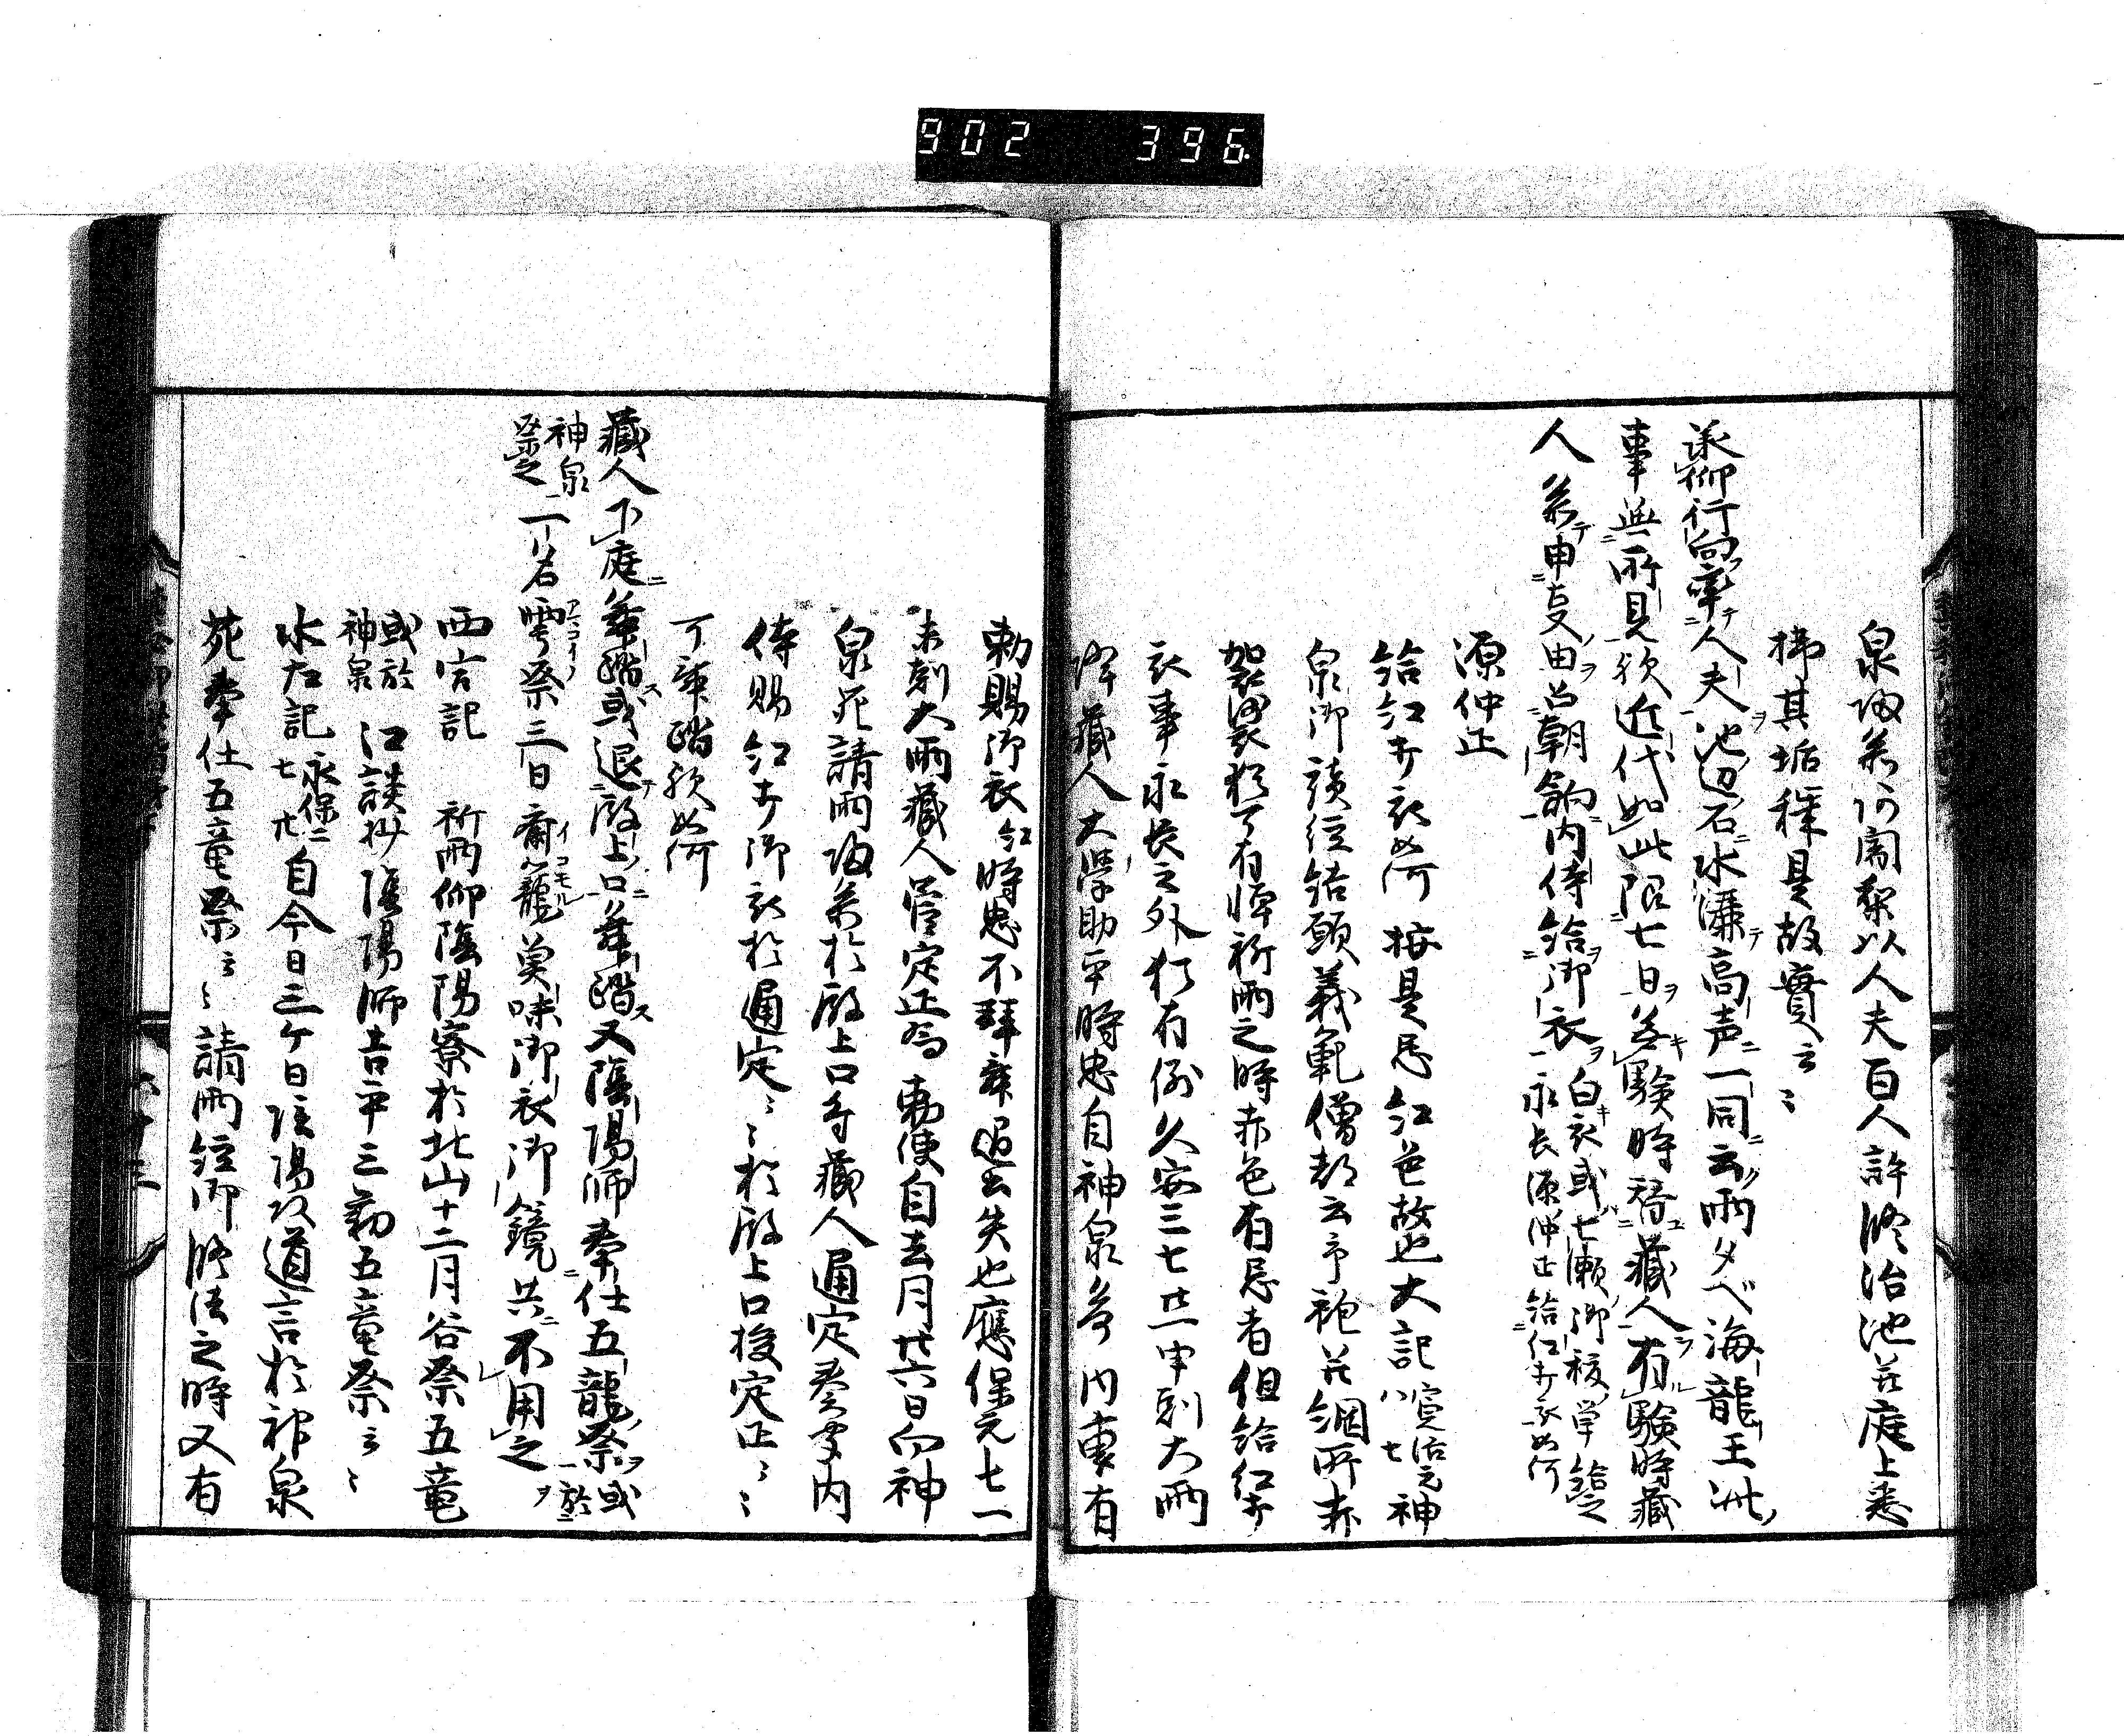 902 396
泉御祭阿闍梨以人夫百人許修治池并庭上悉
掃其垢穢是故實云々
承仰行向率人夫池辺石水灑高声一同云雨タベ海龍王
事無所見欤近代如此限七日無験時替蔵人有験時蔵
人参申吏由召朝餉内侍給御衣白衣或七瀬御祓単給之永長源仲正給紅打衣如何
源仲正
給紅打衣如何 按是忌紅色故也大記寛治元八七神
泉御読経結願義範僧都云予袍并綱所赤
袈裟裟猶可有憚祈雨之時赤色有忌者但給紅打
衣事永長之外猶有例久安三七廿一申刻大雨
降蔵人大学助平時忠自神泉参内裏有
勅賜御衣紅時忠不拝舞退出失也應保元七一
未刻大雨蔵人菅定正為勅使自去月廿六日向神
泉苑請雨帰参於殿上口令蔵人通定奏事内
侍賜紅打御衣於通定々於殿上口授定正々
可舞踏欤如何
蔵人下庭舞踏或退殿上口舞踏又陰陽師奉仕五龍祭或於
神泉祭之一名雩祭三日斎籠魚味御衣御鏡共不用之
西宮記 祈雨仰陰陽寮於北山十二月谷祭五竜
或於神泉 江談抄陰陽師吉平三勤五竜祭云々
水左記永保二七廿自今日三ケ日陰陽頭道言於神泉
苑奉仕五竜祭云々請雨経御修法之時又有